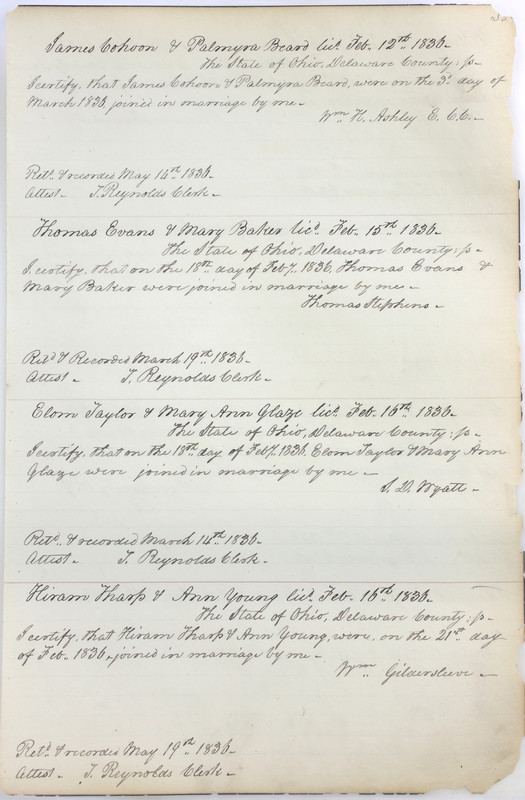 James Cohoon & Palmyra Beard lics. Feb. 12th 1836.
The State of Ohio, Delaware County; ss.
I certify, that James Cohoon & Palmyra Beard, were on the 3d. day of
March 1836 joined in marriage by me.
Wm. H. Ashley E. C. C.
Retd. & recorded May 14th 1836.
Attest. T. Reynolds Clerk.
Thomas Evans & Mary Baker lics. Feb. 15th 1836.
The State of Ohio, Delaware County; ss.
I certify, that on the 18th day of Feby. 1836, Thomas Evans &
Mary Baker were joined in marriage by me.
Thomas Stephens.
Retd. & Recorded March 19th 1836.
Attest. T. Reynolds Clerk.
Elom Taylor & Mary Ann Glaze lics. Feb. 16th 1836.
The State of Ohio, Delaware County; ss.
I certify, that on the 18th day of Feby. 1836, Elom Taylor & Mary Ann
Glaze were joined in marriage by me.
S. D. Wyatt.
Retd. & recorded March 14th 1836.
Attest. T. Reynolds Clerk.
Hiram Tharp & Ann Young lics. Feb. 16th 1836.
The State of Ohio, Delaware County; ss.
I certify, that Hiram Tharp & Ann Young, were, on the 21st day
of Feb. 1836, joined in marriage by me.
Wm. Gildersleeve
Retd. & recorded May 19th 1836.
Attest. T. Reynolds Clerk.